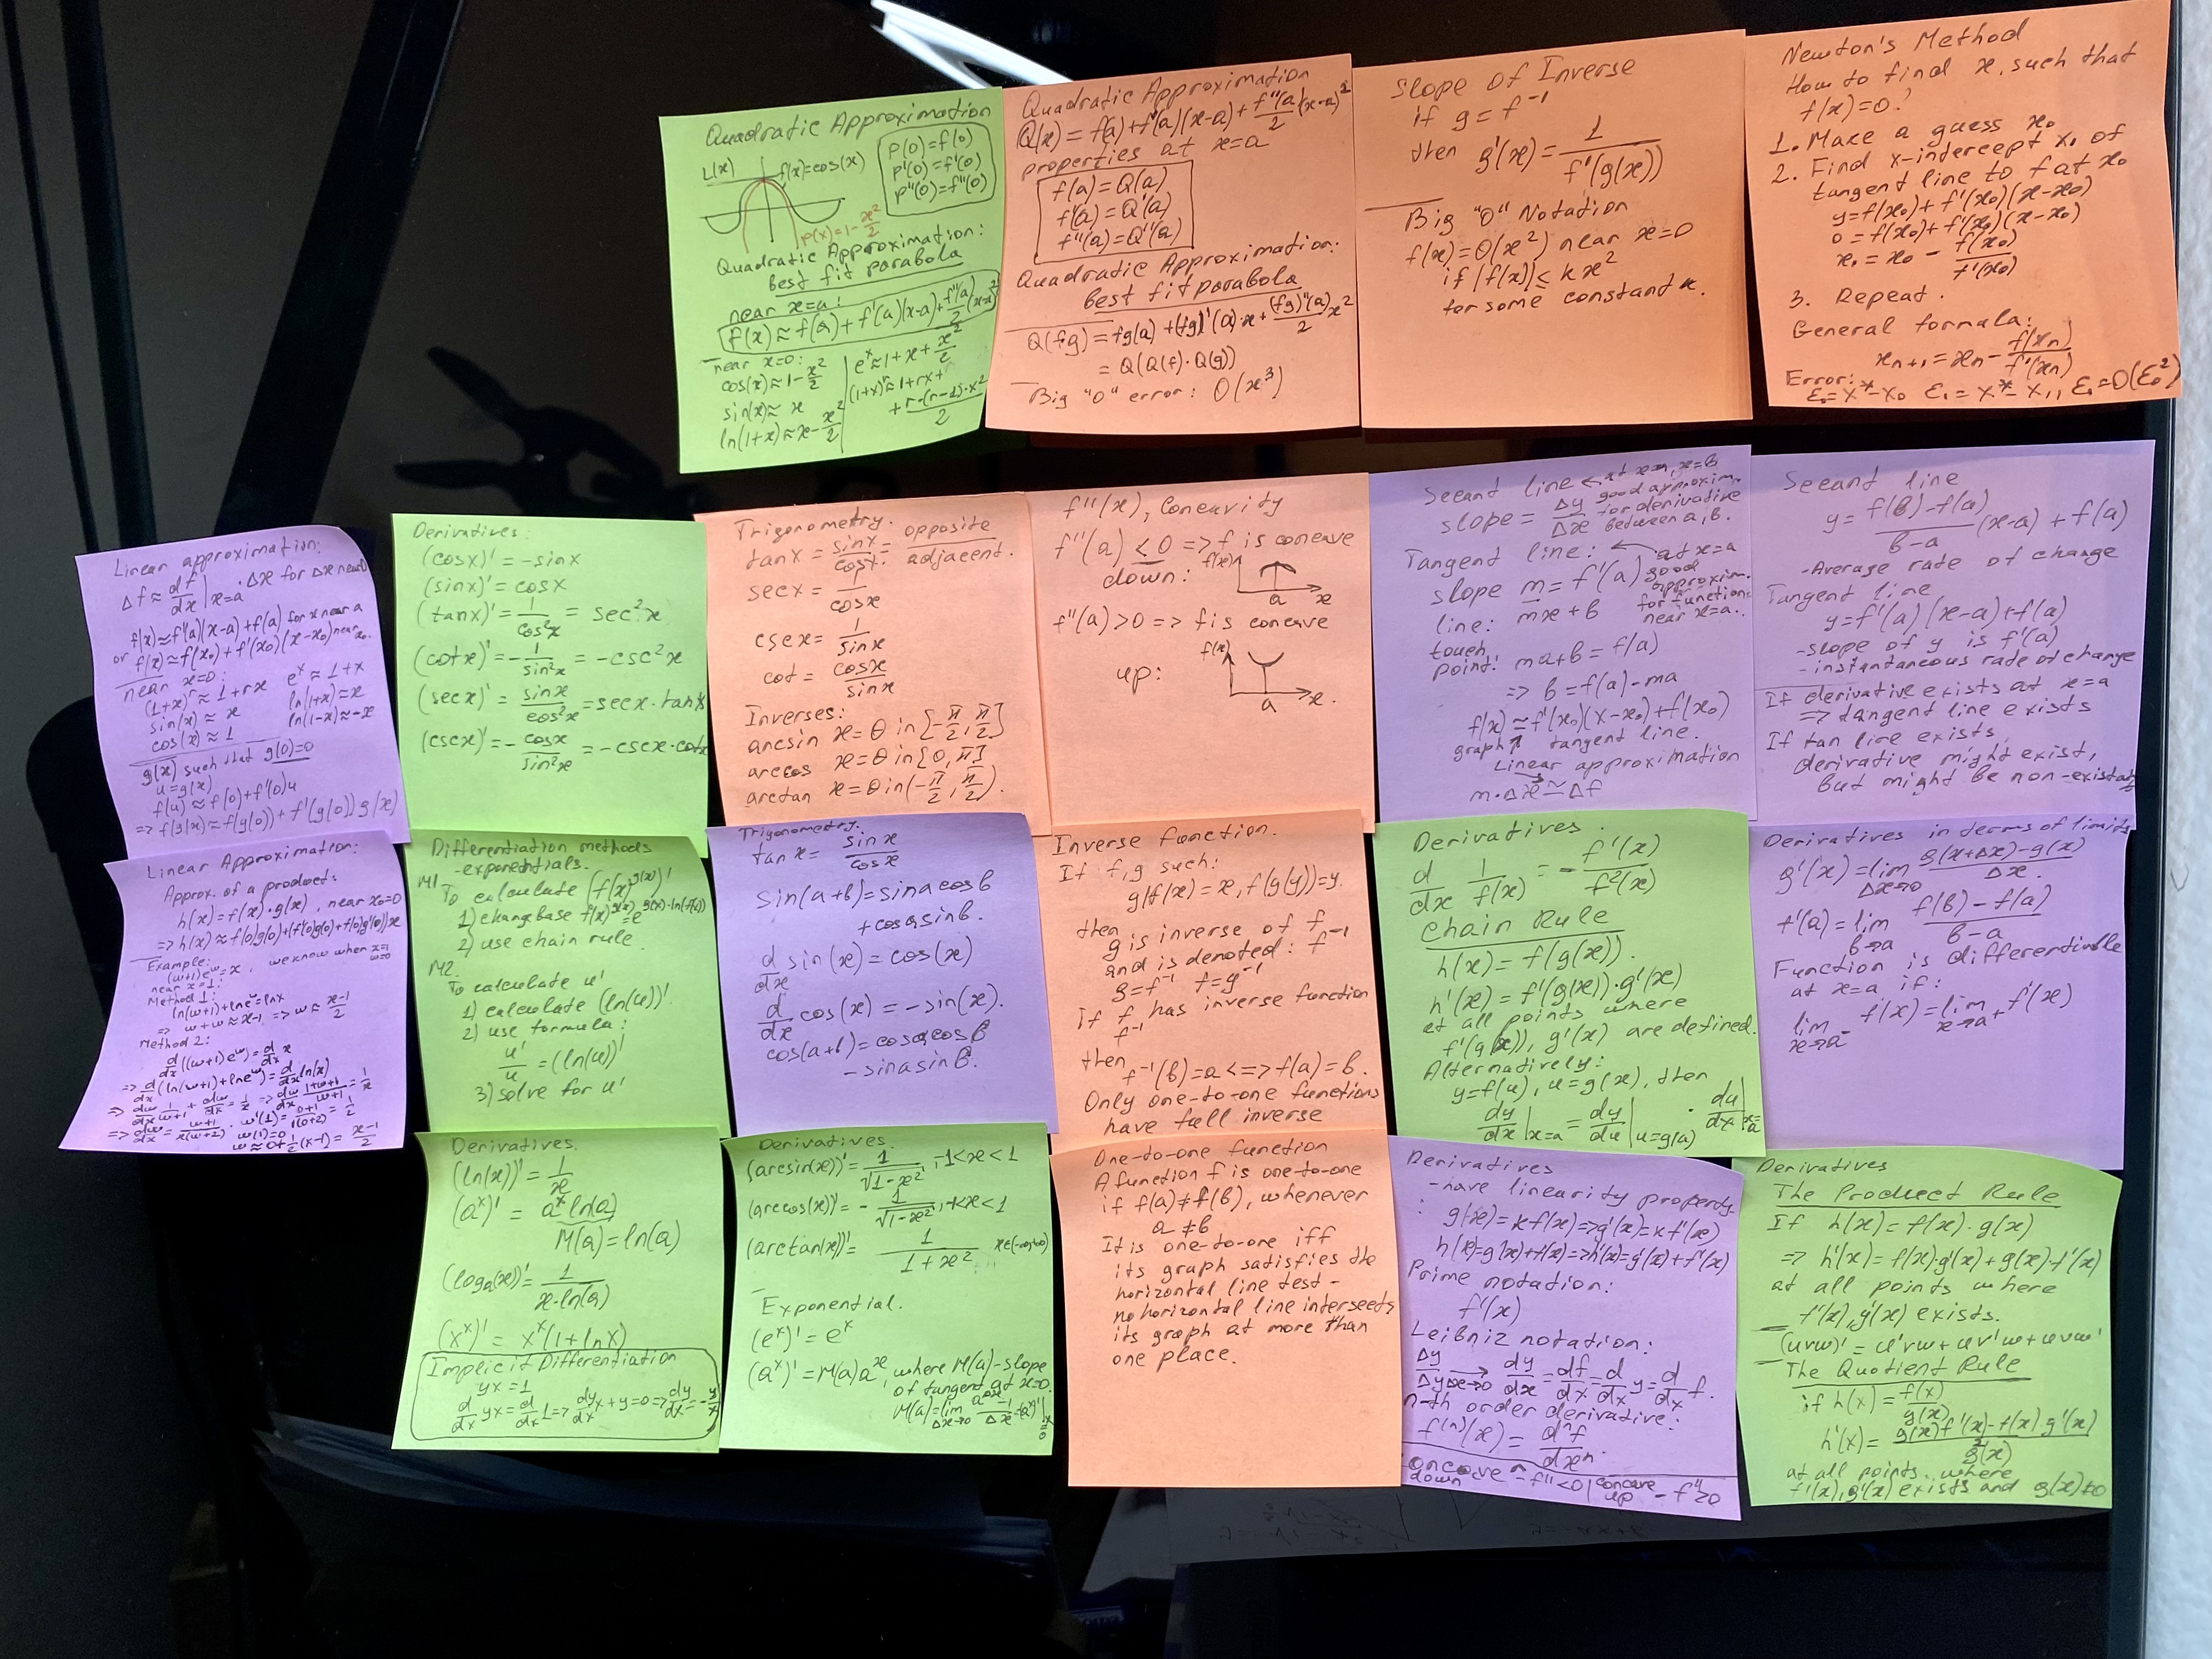 Quadratic Approximation
L(x)
f(x)=cos(x)
p(0)=f(0)
p'(0)=f'(0)
p''(0)=f''(0)
p(x)=1-x²/2
Quadratic Approximation:
best fit parabola
near x=a:
f(x)≈f(a)+f'(a)(x-a)+f''(a)/2(x-a)²
near x=0:
cos(x)≈1-x²/2
sin(x)≈x
ln(1+x)≈x-x²/2
eˣ≈1+x+x²/2
(1+x)ʳ≈1+rx+
+r·(r-1)·x²/2
Quadratic Approximation
Q(x)=f(a)+f'(a)(x-a)+f''(a)/2(x-a)²
properties at x=a
f(a)=Q(a)
f'(a)=Q'(a)
f''(a)=Q''(a)
Quadratic Approximation:
best fit parabola
Q(fg)=fg(a)+(fg)'(a)·x+(fg)''(a)/2 x²
=Q(Q(f)·Q(g))
Big "O" error: O(x³)
Slope of Inverse
if g=f⁻¹
then g'(x)=1/f'(g(x))
Big "O" Notation
f(x)=O(x²) near x=0
if |f(x)|≤kx²
for some constant k.
Newton's Method
How to find x, such that
f(x)=0?
1. Make a guess x₀
2. Find x-intercept x₁ of
tangent line to f at x₀
y=f(x₀)+f'(x₀)(x-x₀)
0=f(x₀)+f'(x₀)(x-x₀)
x₁=x₀-f(x₀)/f'(x₀)
3. Repeat.
General formula:
xₙ₊₁=xₙ-f(xₙ)/f'(xₙ)
Error:
ε₀=x*-x₀ ε₁=x*-x₁, ε₁=O(ε₀²)
Linear approximation:
Δf≈df/dx|x=a·Δx for Δx near 0
f(x)≈f'(a)(x-a)+f(a) for x near a
or f(x)≈f(x₀)+f'(x₀)(x-x₀) near x₀.
near x=0:
(1+x)ʳ≈1+rx
sin(x)≈x
cos(x)≈1
eˣ≈1+x
ln(1+x)≈x
ln(1-x)≈-x
g(x) such that g(0)=0
u=g(x)
f(u)≈f(0)+f'(0)u
=>f(g(x))≈f(g(0))+f'(g(0))g(x)
Derivatives:
(cosx)'=-sinx
(sinx)'=cosx
(tanx)'=1/cos²x=sec²x
(cotx)'=-1/sin²x=-csc²x
(secx)'=sinx/cos²x=secx·tanx
(cscx)'=-cosx/sin²x=-cscx·cotx
Trigonometry.
tanx=sinx/cosx=opposite/adjacent.
secx=1/cosx
cscx=1/sinx
cot=cosx/sinx
Inverses:
arcsin x=θ in [-π/2,π/2]
arccos x=θ in [0,π]
arctan x=θ in (-π/2,π/2)
f''(x), Concavity
f''(a)<0=>f is concave
down:
f(x)
a
x
f''(a)>0=>f is concave
up:
f(x)
a
x.
Secant line ← at x=a, x=b
slope=Δy/Δx
good approxim.
for derivative
between a,b.
Tangent line: ← at x=a
slope m=f'(a)
good
approxim.
for function
near x=a.
line: mx+b
touch
point: ma+b=f(a)
=>b=f(a)-ma
f(x)≈f'(x₀)(x-x₀)+f(x₀)
graph↑ tangent line.
Linear approximation
m·Δx≈Δf
Secant line
y=f(b)-f(a)/b-a(x-a)+f(a)
-Average rate of change
Tangent line
y=f'(a)(x-a)+f(a)
-slope of y is f'(a)
-instantaneous rate of change
If derivative exists at x=a
=>tangent line exists
If tan line exists,
derivative might exist,
but might be non-existant
Linear Approximation:
Approx. of a product:
h(x)=f(x)·g(x), near x₀=0
=>h(x)≈f(0)g(0)+(f'(0)g(0)+f(0)g'(0))x
Example:
(w+1)eʷ=x, we know when x=1
w=0
near x=1:
Method 1:
ln(w+1)+lneʷ=lnx
=> w+w≈x-1 =>w≈x-1/2
Method 2:
d/dx((w+1)eʷ)=d/dx x
=>d/dx(ln(w+1)+lneʷ)=d/dx ln(x)
=>dw/dx 1/w+1+dw/dx=1/x=>dw/dx 1+w+1/w+1=1/x
=>dw/dx=w+1/x(w+2). w'(1)=0+1/1(0+2)=1/2
w(1)=0
w≈0+1/2(x-1)=x-1/2
Differentiation methods
-exponentials.
M1
To calculate (f(x)^g(x))'
1) change base f(x)^g(x)=e^g(x)·ln(f(x))
2) use chain rule.
M2.
To calculate u'
1) calculate (ln(u))'
2) use formula:
u'/u=(ln(u))'
3) solve for u'
Trigonometry.
tanx=sinx/cosx
sin(a+b)=sinacosb
+cosasinb.
d/dx sin(x)=cos(x)
d/dx cos(x)=-sin(x).
cos(a+b)=cosacosb
-sinasinb.
Inverse function.
If f,g such:
g(f(x)=x, f(g(y))=y.
then
g is inverse of f
and is denoted: f⁻¹
g=f⁻¹ f=g⁻¹
If f has inverse function
f⁻¹
then
f⁻¹(b)=a<=>f(a)=b.
Only one-to-one functions
have full inverse
Derivatives.
d/dx 1/f(x)=-f'(x)/f²(x)
Chain Rule
h(x)=f(g(x)).
h'(x)=f'(g(x))·g'(x)
at all points where
f'(g(x)), g'(x) are defined.
Alternatively:
y=f(u), u=g(x), then
dy/dx|x=a=dy/du|u=g(a)·du/dx|x=a
Derivatives in terms of limits
g'(x)=lim Δx→0 g(x+Δx)-g(x)/Δx.
f'(a)=lim b→a f(b)-f(a)/b-a
Function is differentiable
at x=a if:
lim x→a⁻ f'(x)=lim x→a⁺ f'(x)
Derivatives.
(ln(x))'=1/x
(aˣ)'=aˣln(a)
M(a)=ln(a)
(logₐ(x))'=1/x·ln(a)
(xˣ)'=xˣ(1+lnx)
Implicit Differentiation
yx=1
d/dx yx=d/dx 1=>dy/dx x+y=0=>dy/dx=-y/x
Derivatives.
(arcsin(x))'=1/√1-x², -1<x<1
(arccos(x))'=-1/√1-x², -1<x<1
(arctan(x))'=1/1+x² x∈(-∞,+∞)
Exponential.
(eˣ)'=eˣ
(aˣ)'=M(a)aˣ, where M(a)-slope
of tangent at x=0.
M(a)=lim Δx→0 a^Δx-1/Δx=(aˣ)'|x=0
One-to-one function
A function f is one-to-one
if f(a)≠f(b), whenever
a≠b
It is one-to-one iff
its graph satisfies the
horizontal line test-
no horizontal line intersects
its graph at more than
one place.
Derivatives
-have linearity property
:
g(x)=kf(x)=>g'(x)=kf'(x)
h(x)=g(x)+f(x)=>h'(x)=g'(x)+f'(x)
Prime notation:
f'(x)
Leibniz notation:
Δy/Δx Δx→0 dy/dx=df/dx=d/dx y=d/dx f.
n-th order derivative:
f⁽ⁿ⁾(x)=dⁿf/dxⁿ.
concave down -f''<0|concave up -f''>0
Derivatives
The Product Rule
If h(x)=f(x)·g(x)
=>h'(x)=f(x)·g'(x)+g(x)·f'(x)
at all points where
f'(x),g'(x) exists.
(uvw)'=u'vw+uv'w+uvw'
The Quotient Rule
if h(x)=f(x)/g(x)
h'(x)=g(x)f'(x)-f(x)g'(x)/g²(x)
at all points where
f'(x),g'(x) exists and g(x)≠0